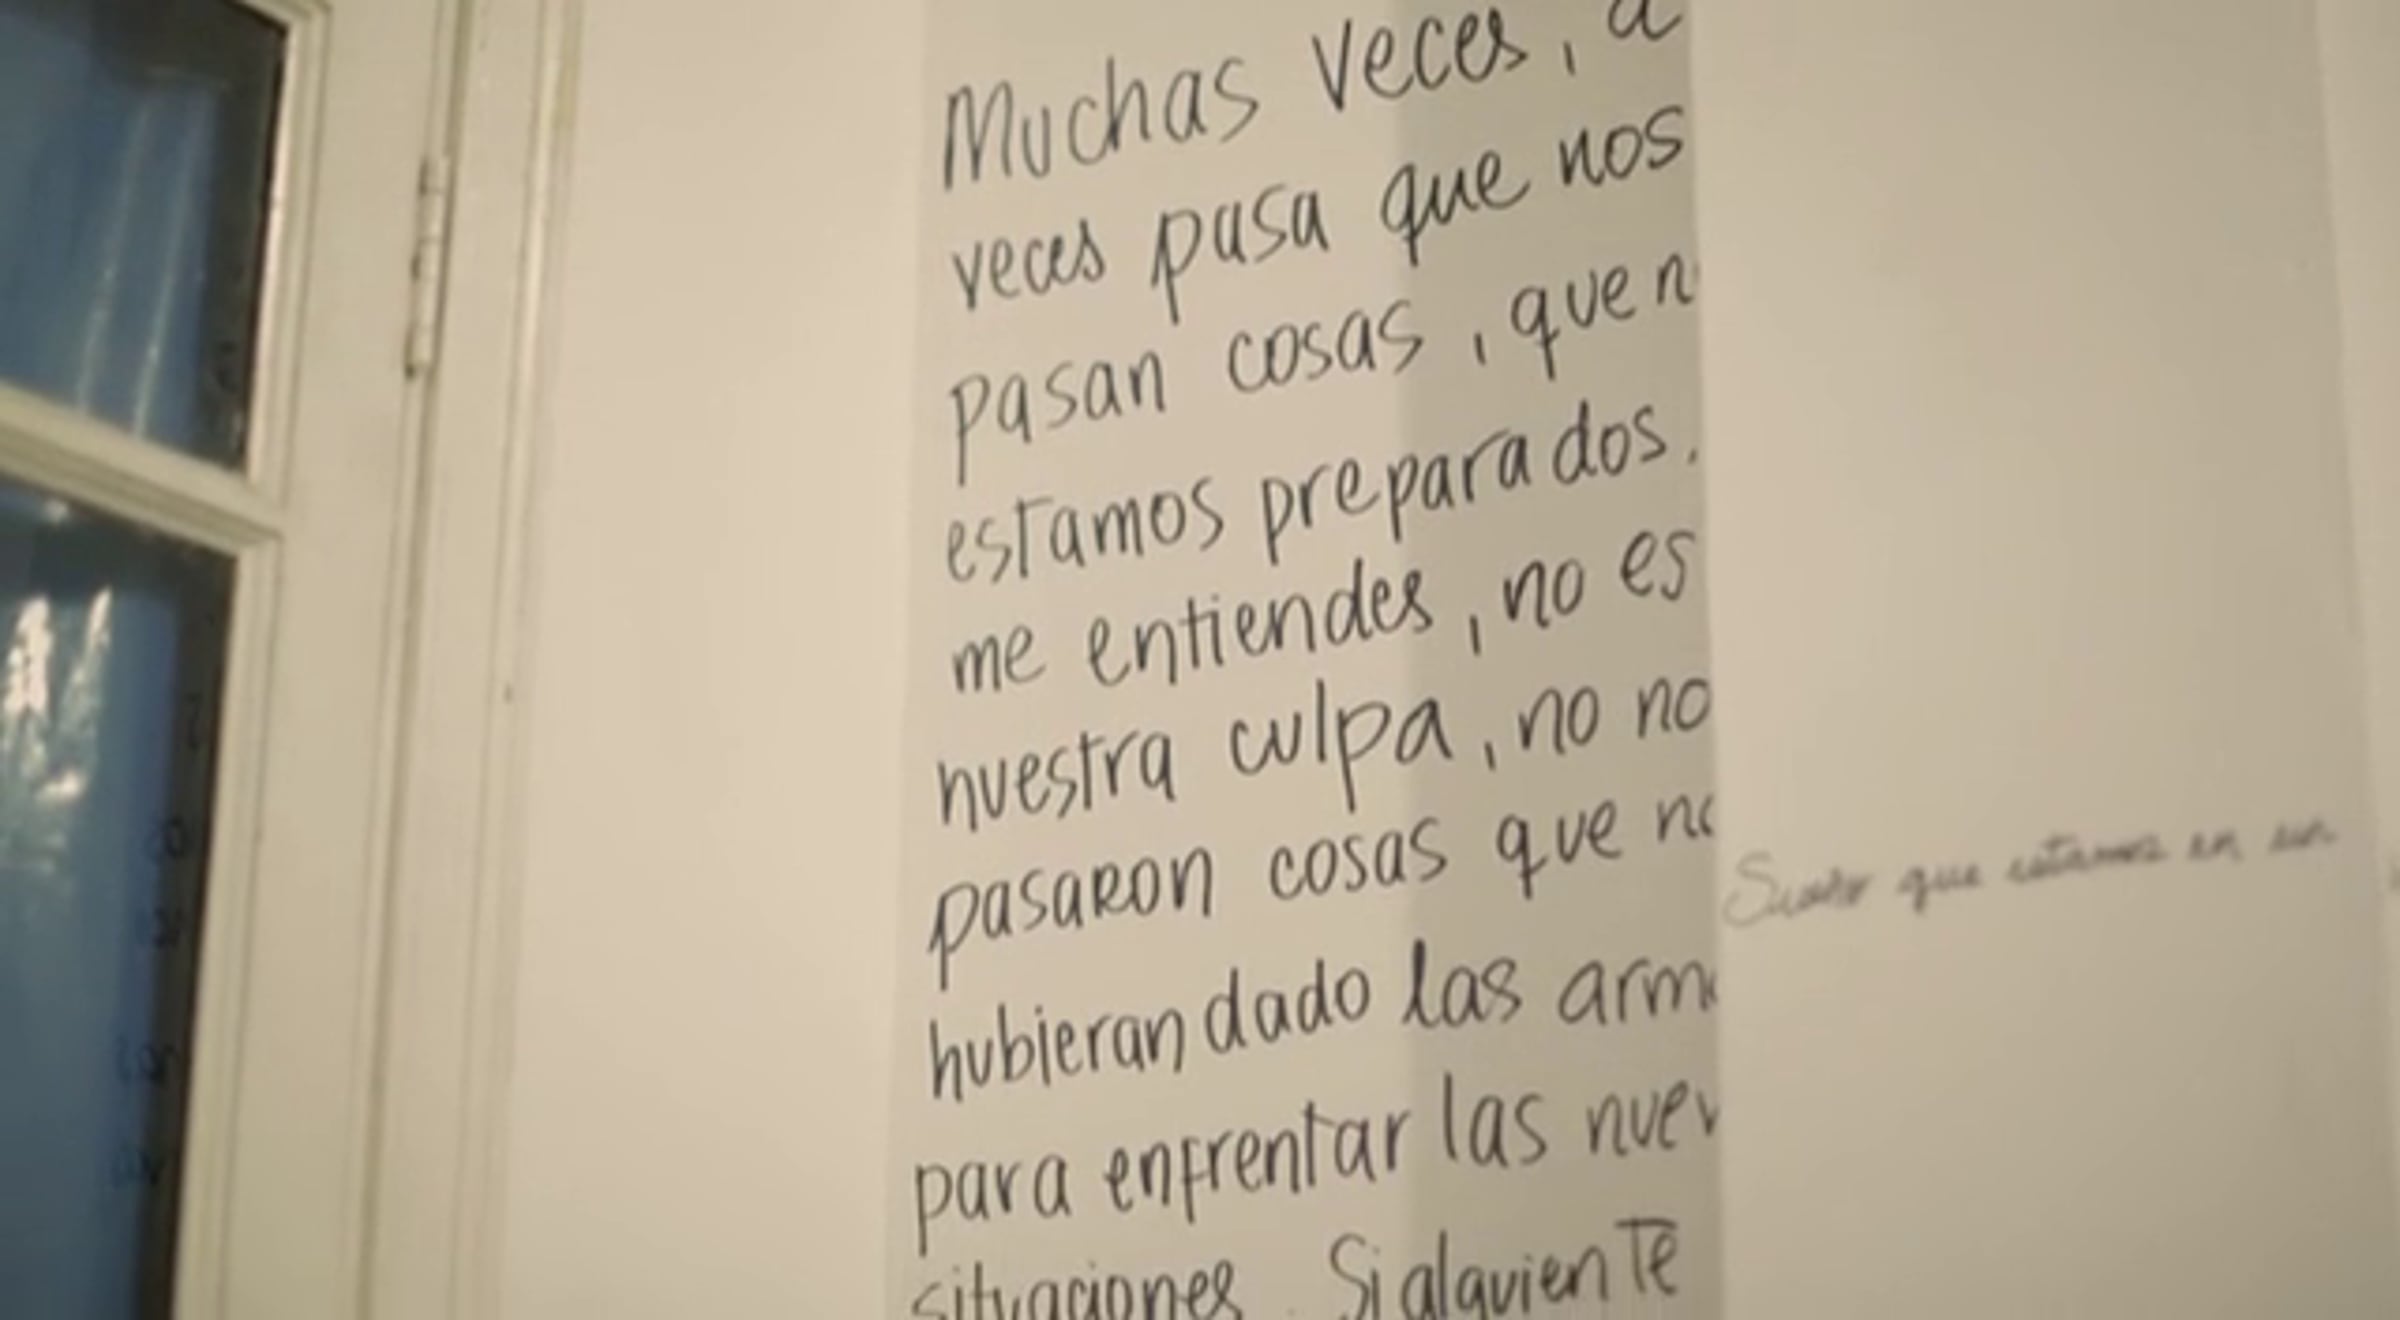 Muchas veces, a
veces pasa que nos
pasan cosas, que n
estamos preparados.
me entiendes, no es
nuestra culpa, no no
pasaron cosas que no
hubieran dado las arm
para enfrentar las nuev
situaciones. Si alguien te
que estamos en un